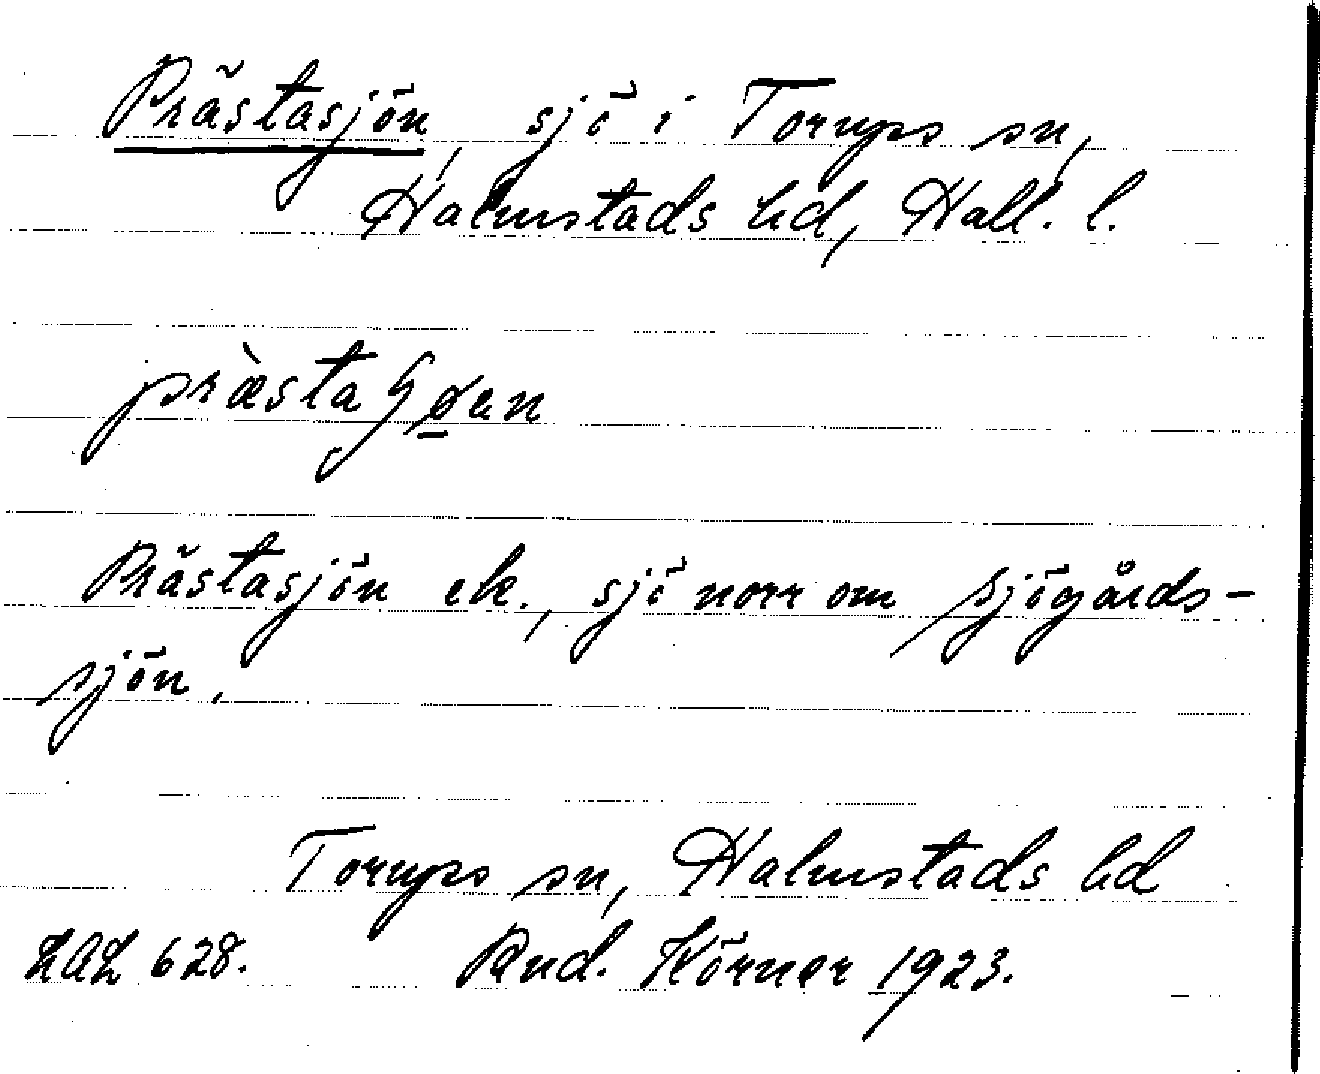 Prästasjön, sjö i Torups sn,
Halmstads hd, Hall. l.
Prästasjön ek., sjö norr om Sjögårds-
sjön.
Torups sn, Halmstads hd
LAL 628. Rud. Körner 1923.